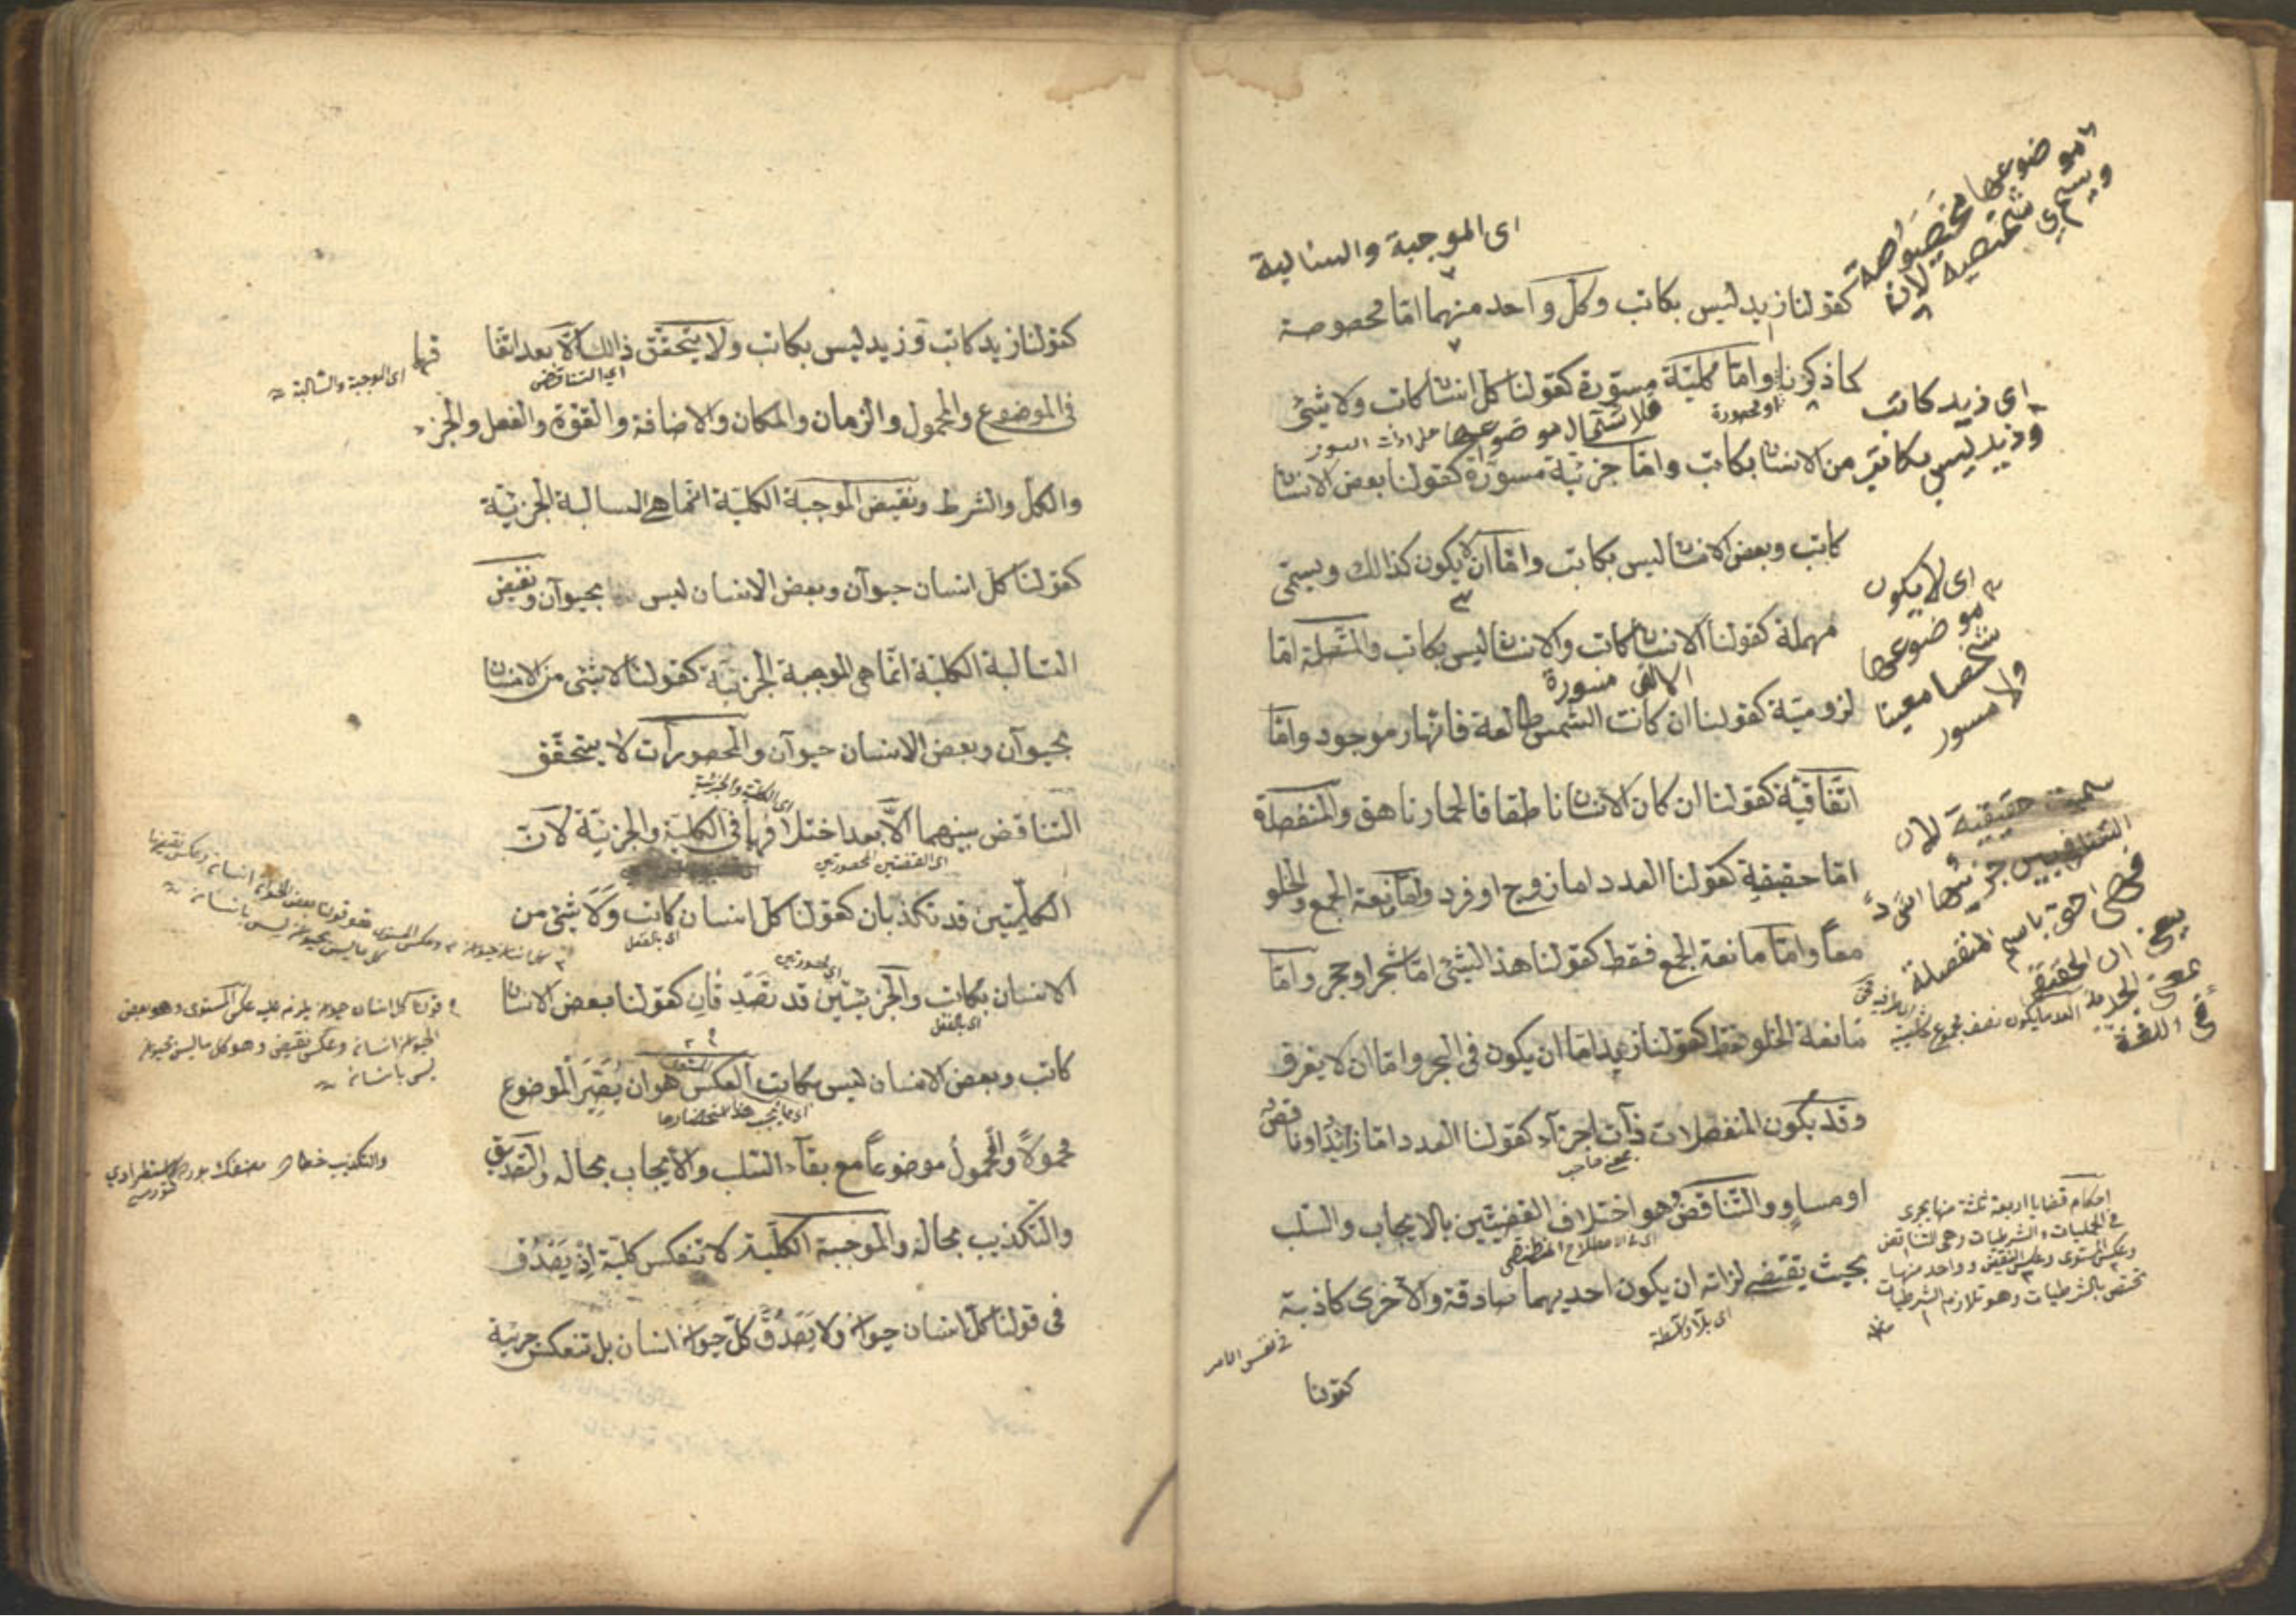 اى الموجبة والسالبة
كقولنا زيد ليس بكاتب وكل واحد منهما امّا مخصوصة
كما ذكرنا وامّا كليّة مسوّرة كقولنا كل انسان كاتب ولا شئ
من الانسان بكاتب وامّا جزئيّة مسوّرة كقولنا بعض الانسان
كاتب وبعض الانسان ليس بكاتب وامّا ان لا يكون كذالك ويسمّى
مهملة كقولنا الانسان كاتب والانسان ليس بكاتب والمتّصلة امّا
لزوميّة كقولنا ان كانت الشمس طالعة فالنّهار موجود وامّا
اتّفاقيّة كقولنا ان كان الانسان ناطقا فالحمار ناهق والمنفصلة
امّا حقيقية كقولنا العدد اما زوج او فرد وهى مانعة الجمع والخلو
معاً وامّا مانعة الجمع فقط كقولنا هذا الشئ امّا شجر او حجر وامّا
مانعة الخلو فقط كقولنا زيد اما ان يكون فى البحر وامّا ان لا يغرق
وقد يكون المنفصلات ذآت اجزآء كقولنا العدد امّا زائدٌ او ناقصٌ
او مساوٍ والتّناقض هو اختلاف القضيّتين بالايجاب والسّلب
بحيث يقتضى لذاته ان يكون احديهما صادقة والاخرى كاذبة
كقولنا
موضوعها مخصوصة
ويسمى شخصية لان
اى زيد كاتب
وزيد ليس بكاتب
او محصورة
فلاشتمال موضوعها على ادات السور
اى لا يكون
موضوعها
شخصا معينا
ولا مسور
الالف مسورة
سميت حقيقية لان
التنافى بين جزئيها اشدّ
فهى احق باسم المنفصلة
فى اللغة
بمعنى صاحب
اى فى الاصطلاح المنطقى
اى بلا واسطة
فى نفس الامر
احكام قضايا اربعة ثلثة منها يجرى
فى الحمليات والشرطيات وهى التناقض
وعكس المستوى وعكس النقيض وواحد منها
تختص بالشرطيات وهو تلازم الشرطيات
كقولنا زيد كاتب وزيد ليس بكاتب ولا يتحقّق ذالك الّا بعد اتّفا قهما
فى الموضوع والمحمول والزمان والمكان والاضافة والقوّة والفعل والجزء
والكل والشرط ونقيض الموجبة الكليّة انّما هى السالبة الجزئيّة
كقولنا كل انسان حيوآن وبعض الانسان ليس بحيوآن ونقيض
السّالبة الكليّة انّما هى الموجبة الجزئيّة كقولنا لا شئ من الانسان
بحيوآن وبعض الانسان حيوآن والمحصورآت لا يتحقّق
التناقض بينهما الّا بعد اختلافهما فى الكليّة والجزئيّة لانّ
الكليّتين قد تكذبان كقولنا كل انسان كاتب ولا شئ من
الانسان بكاتب والجزئيّتين قد تصدقان كقولنا بعض الانسان
كاتب وبعض الانسان ليس بكاتب العكس هو ان يُصَيَّر الموضوع
محمولاً والمحمولُ موضوعاً مع بقآء السّلب والايجاب بحاله والتصديق
والتّكذيب بحاله والموجبة الكليّة لا تنعكس كليّة اذ يَصْدُق
فى قولنا كل انسان حيوان ولا يَصْدُق كلّ حيوان انسان بل تنعكس جزئيّة
اى الموجبة والسالبة
اى التناقض
اى الكلية والجزئية
اى القضيتين المحصورتين
اى بالفعل
اى محصورتين
اى بالفعل
قولنا كل انسان حيوان يلزم عليه عكس المستوى وهو بعض
الحيوان انسان وعكس نقيض وهو كل ما ليس بحيوان
ليس بانسان
والتكذيب خطاء